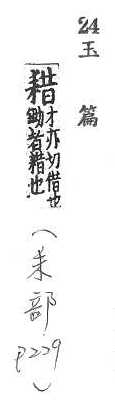 24
玉篇
耤才亦切借也
鋤者耤也
(耒部 P229)